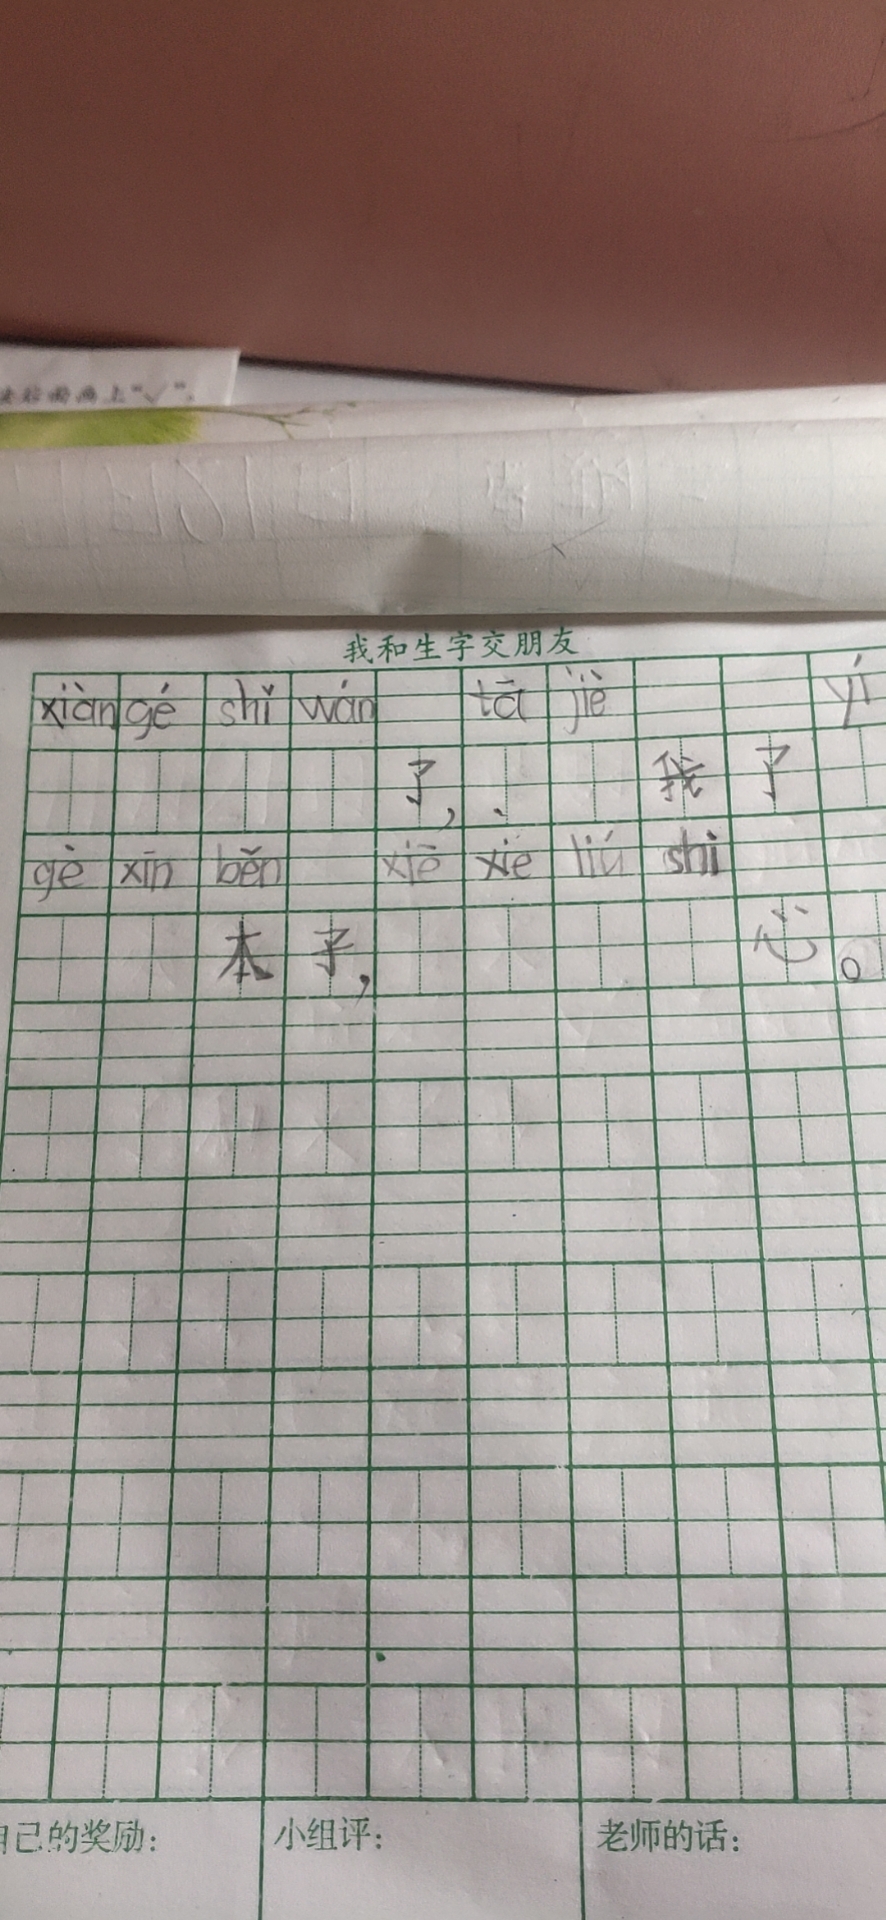 后面画上“√”。
我和生字交朋友
xiàn gé shǐ wán tā jiè yí
了， 我 了
gè xīn běn xiě xie liú shi
本 子， 心。
自己的奖励： 小组评： 老师的话：